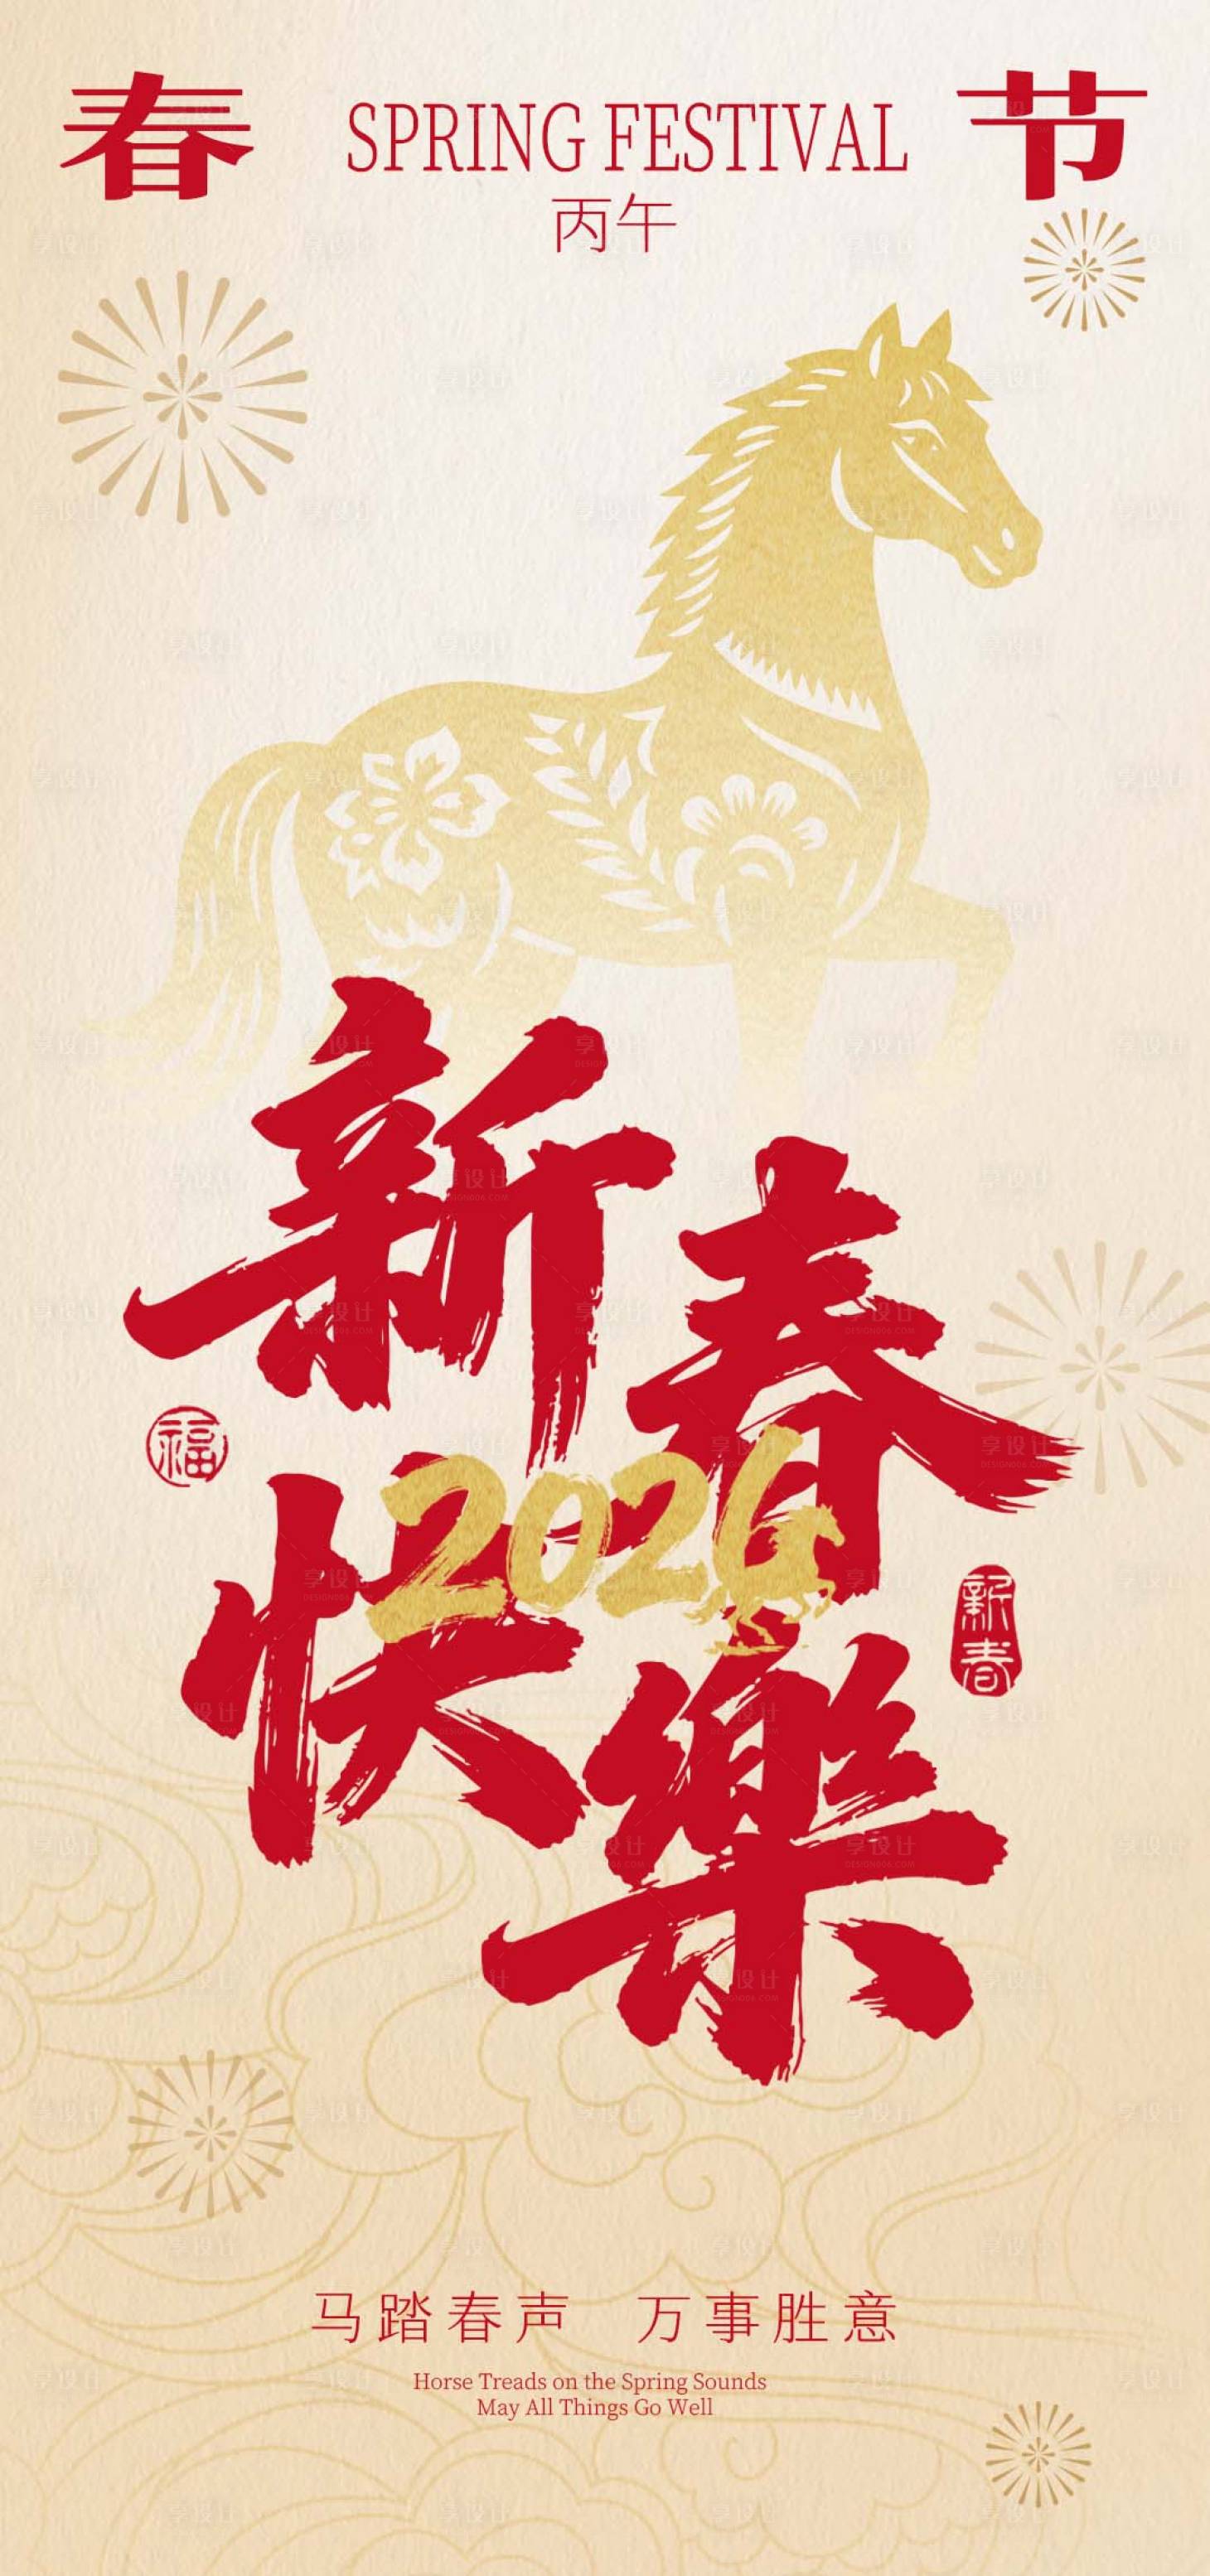 春 SPRING FESTIVAL 节
丙午
新春
福
2026
快樂
新春
马踏春声 万事胜意
Horse Treads on the Spring Sounds
May All Things Go Well
享设计
DESIGN006.COM